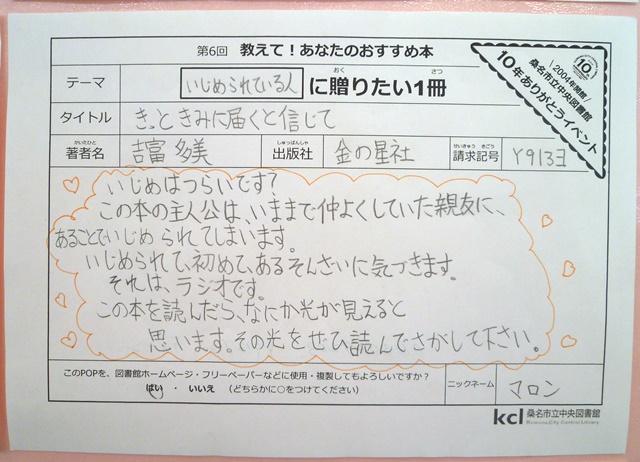 第6回 教えて！あなたのおすすめ本
＼2004年開館／
桑名市立中央図書館
10年ありがとうイベント
10
テーマ いじめられている人 に贈りたい1冊
おく さつ
タイトル きっときみに届くと信じて
かいたひと しゅっぱんしゃ せいきゅう きごう
著者名 吉富 多美 出版社 金の星社 請求記号 Y913ヨ
いじめはつらいです？
この本の主人公は、いままで仲よくしていた親友に、
あることでいじめられてしまいます。
いじめられて、初めて、あるそんざいに気づきます。
それは、ラジオです。
この本を読んだら、なにか光が見えると
思います。その光をぜひ読んでさがして下さい。
このPOPを、図書館ホームページ・フリーペーパーなどに使用・複製してもよろしいですか？
はい ・ いいえ （どちらかに○をつけてください）
ニックネーム マロン
kcl 桑名市立中央図書館
Kuwana City Central Library